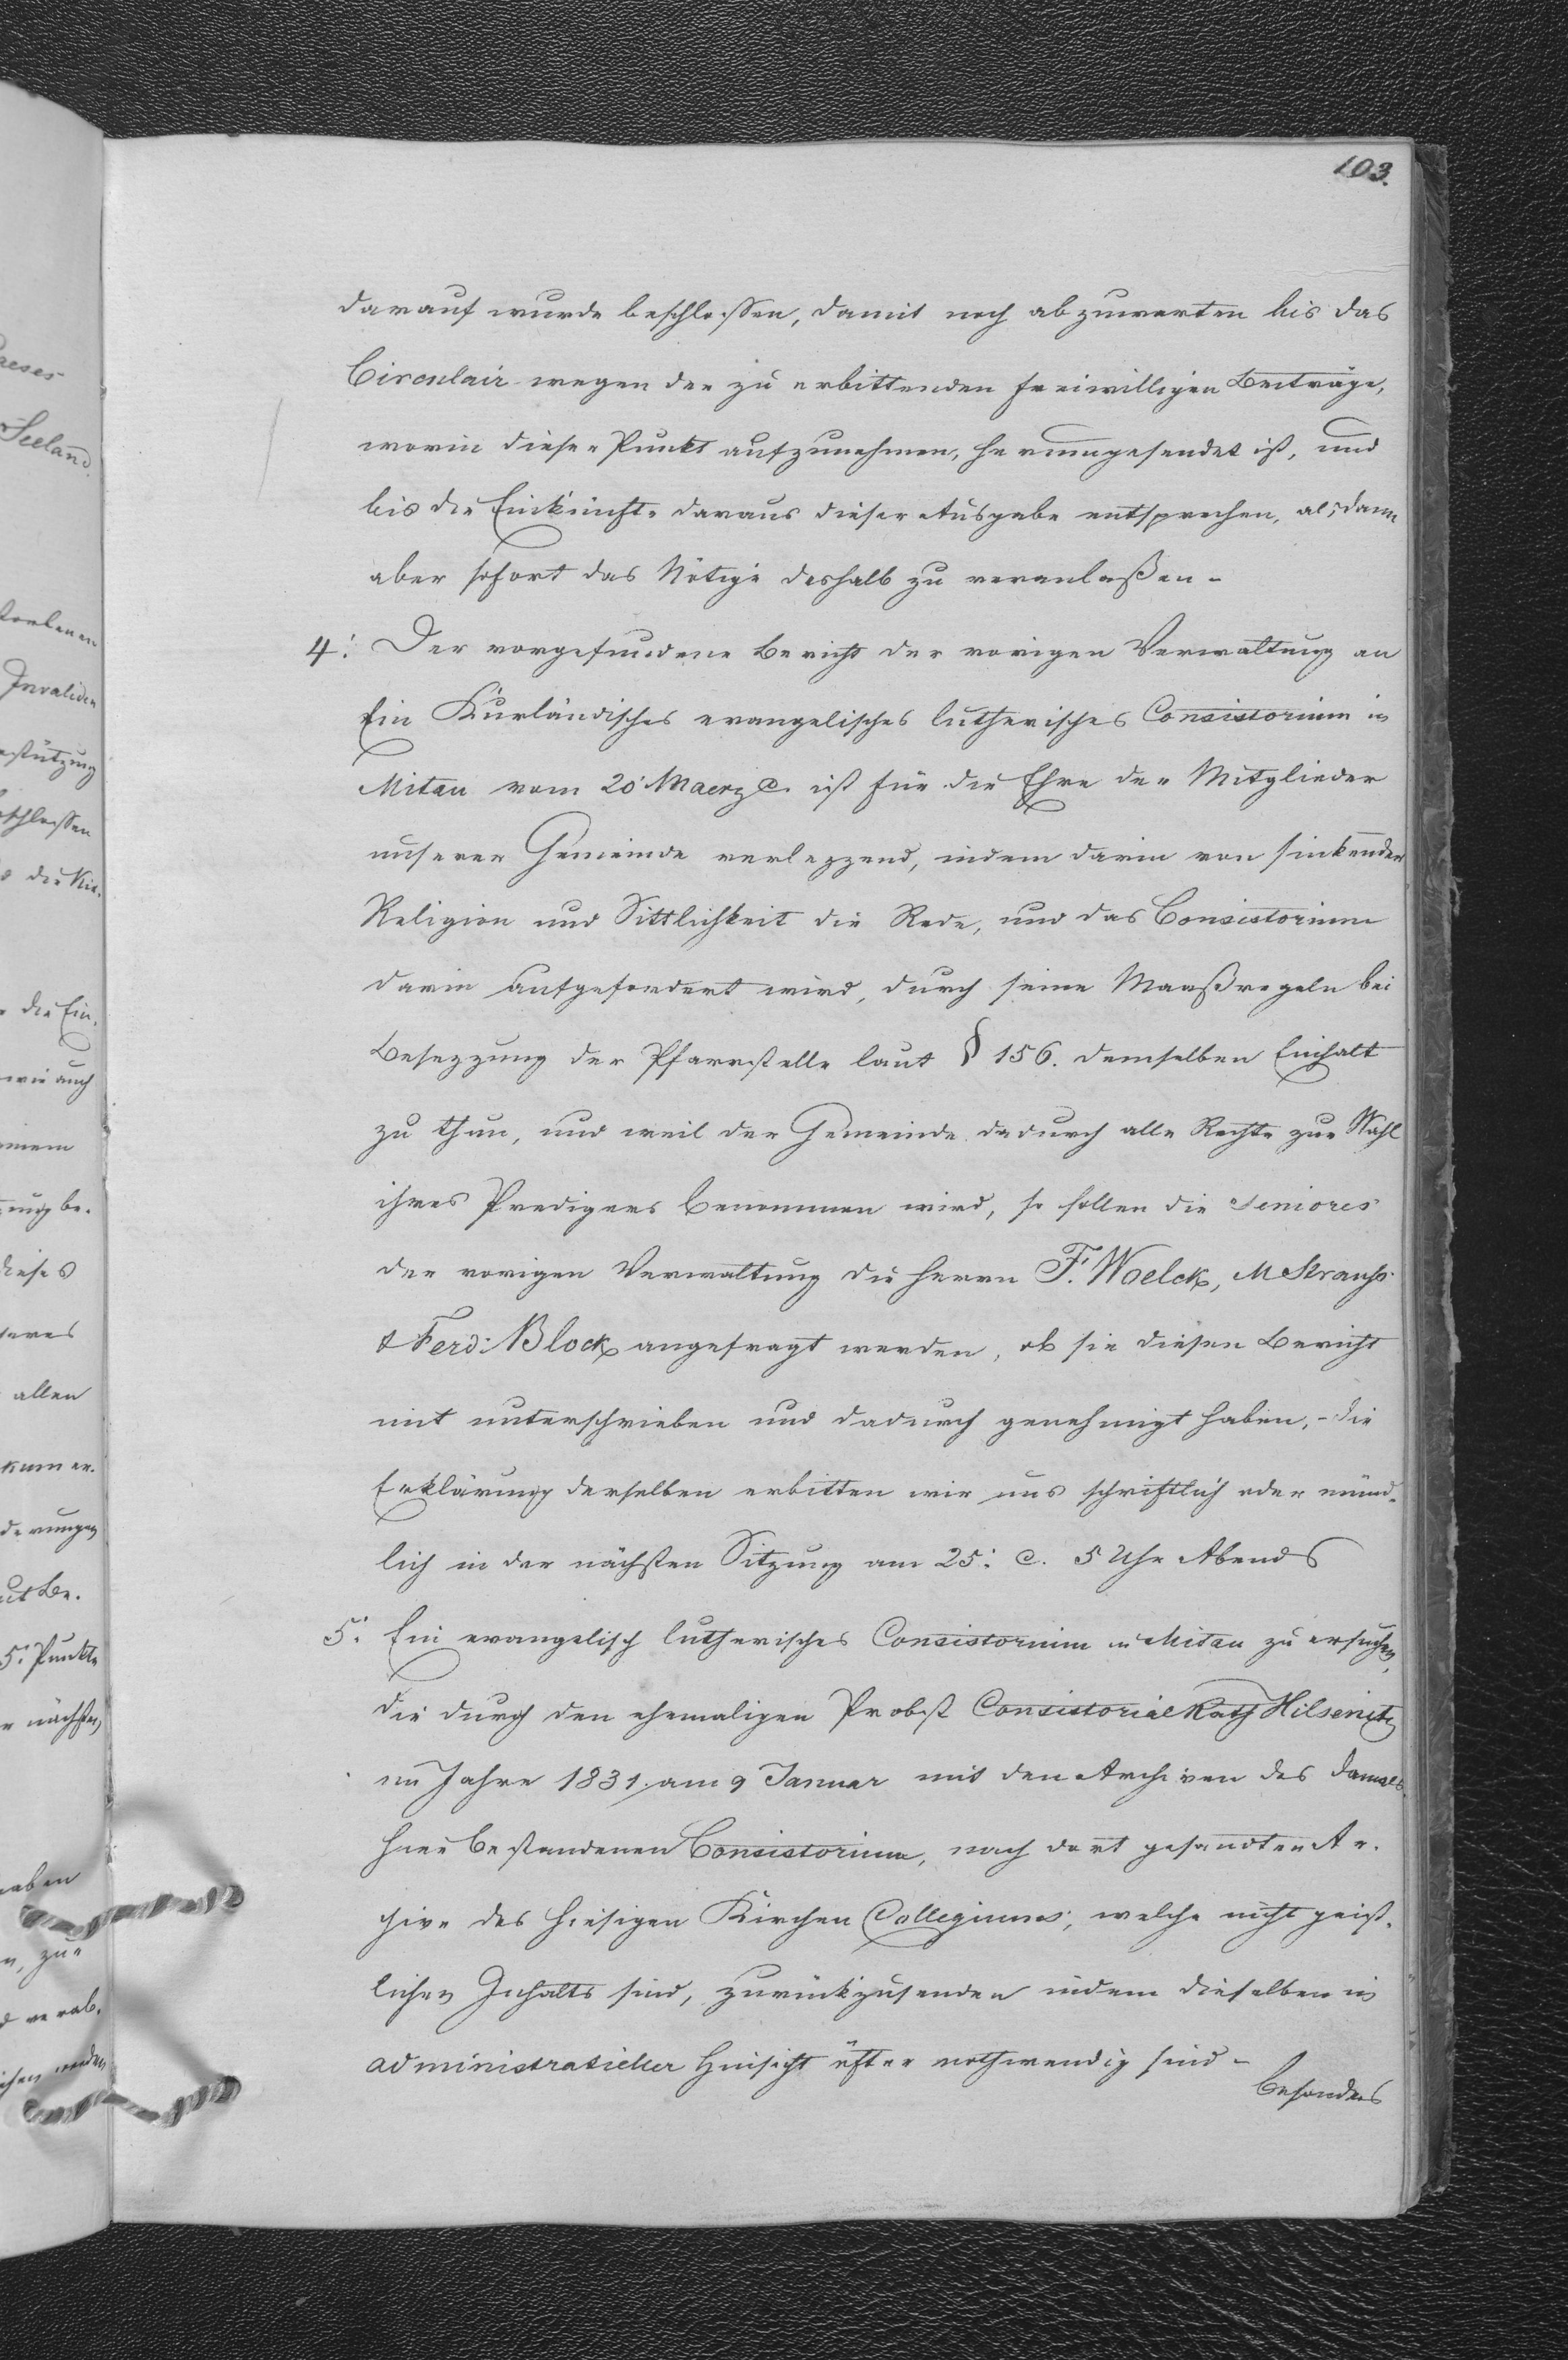 103.
darauf wurde beschlossen, damit noch abzuwarten bis das
Circulair wegen der zu erbittenden freiwilligen Beiträge,
worin dieser Punkt aufzunehmen, herumgesendet ist, und
bis die Einkünfte daraus dieser Ausgabe entsprechen, alsdann
aber sofort das Nötige deshalb zu veranlaßen-
4: Der vorgefundene Bericht der vorigen Verwaltung an
Ein Kurländisches evangelisches lutherisches Consistorium in
Mitau vom 20 Maerz c. ist für die Ehre der Mitglieder
unserer Gemeinde verlezzend, indem darin von sinkender
Religion und Sittlichkeit die Rede, und das Consistorium
darin aufgefordert wird, durch seine Maaßregeln bei
Besezzung der Pfarrstelle laut § 156. demselben Einhalt
zu thun, und weil der Gemeinde dadurch alle Rechte zur Wahl
ihres Predigers benommen wird, so sollen die Seniores
der vorigen Verwaltung die Herrn F. Woelck, M Strauss
& Ferd: Block angefragt werden, ob sie diesen Bericht
mit unterschrieben und dadurch genehmigt haben,- die
Erklärung derselben erbitten wir uns schriftlich oder münd-
lich in der nächsten Sitzung am 25: c. 5 Uhr Abends
5: Ein evangelisch lutherisches Consistorium in Mitau zu ersuchen,
die durch den ehemaligen Probst Consistorial Rath Hilsenitz
im Jahre 1831. am 9 Januar mit den Archiven des damals
hier bestandenen Consistorium, nach dort gesandten Ar-
chive des hiesigen Kirchen Collegiums, welche nicht geist-
lichen Inhalts sind, zurückzusenden indem dieselben in
administrativer Hinsicht öfter nothwendig sind-
besonders